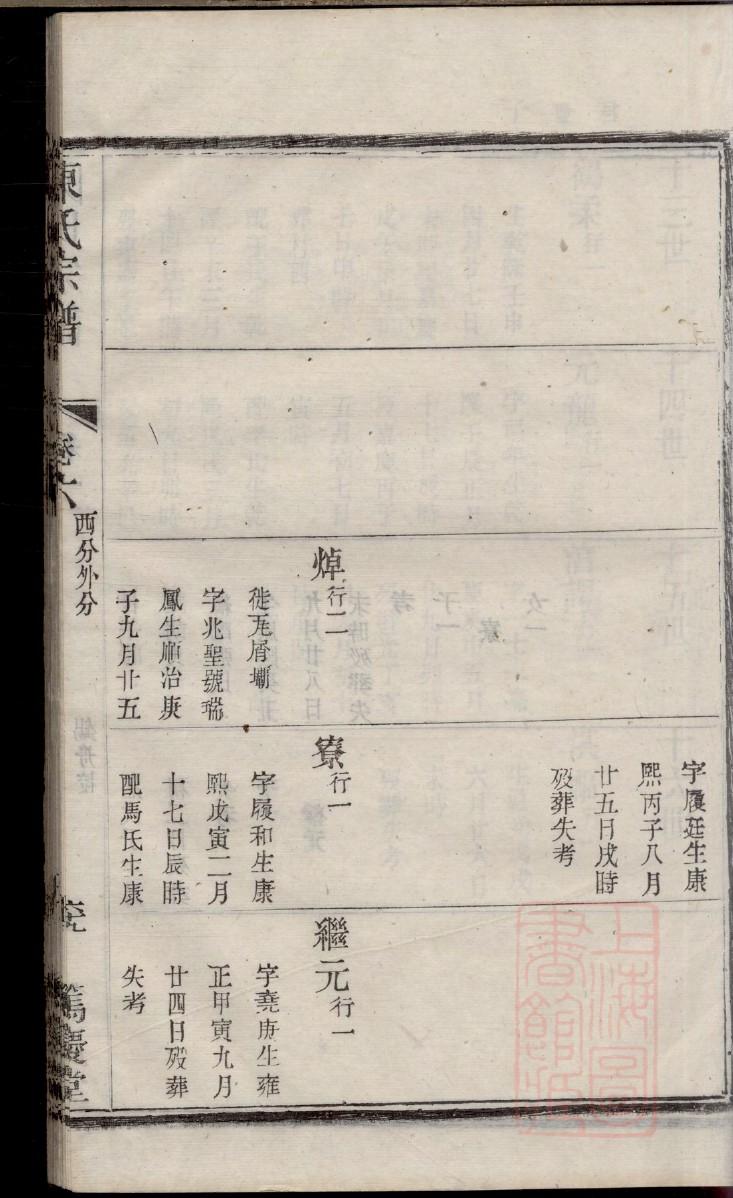 字履廷生康
熙丙子八月
廿五日戌時
歿葬失考
焯行二
徙瓦屑壩
字兆聖號瑞
鳳生順治庚
子九月廿五
寮行一
字履和生康
熙戊寅二月
十七日辰時
配馬氏生康
繼元行一
字堯庚生雍
正甲寅九月
廿四日歿葬
失考
陳氏宗譜
卷六
西分外分
篤慶堂
上海圖
書館藏